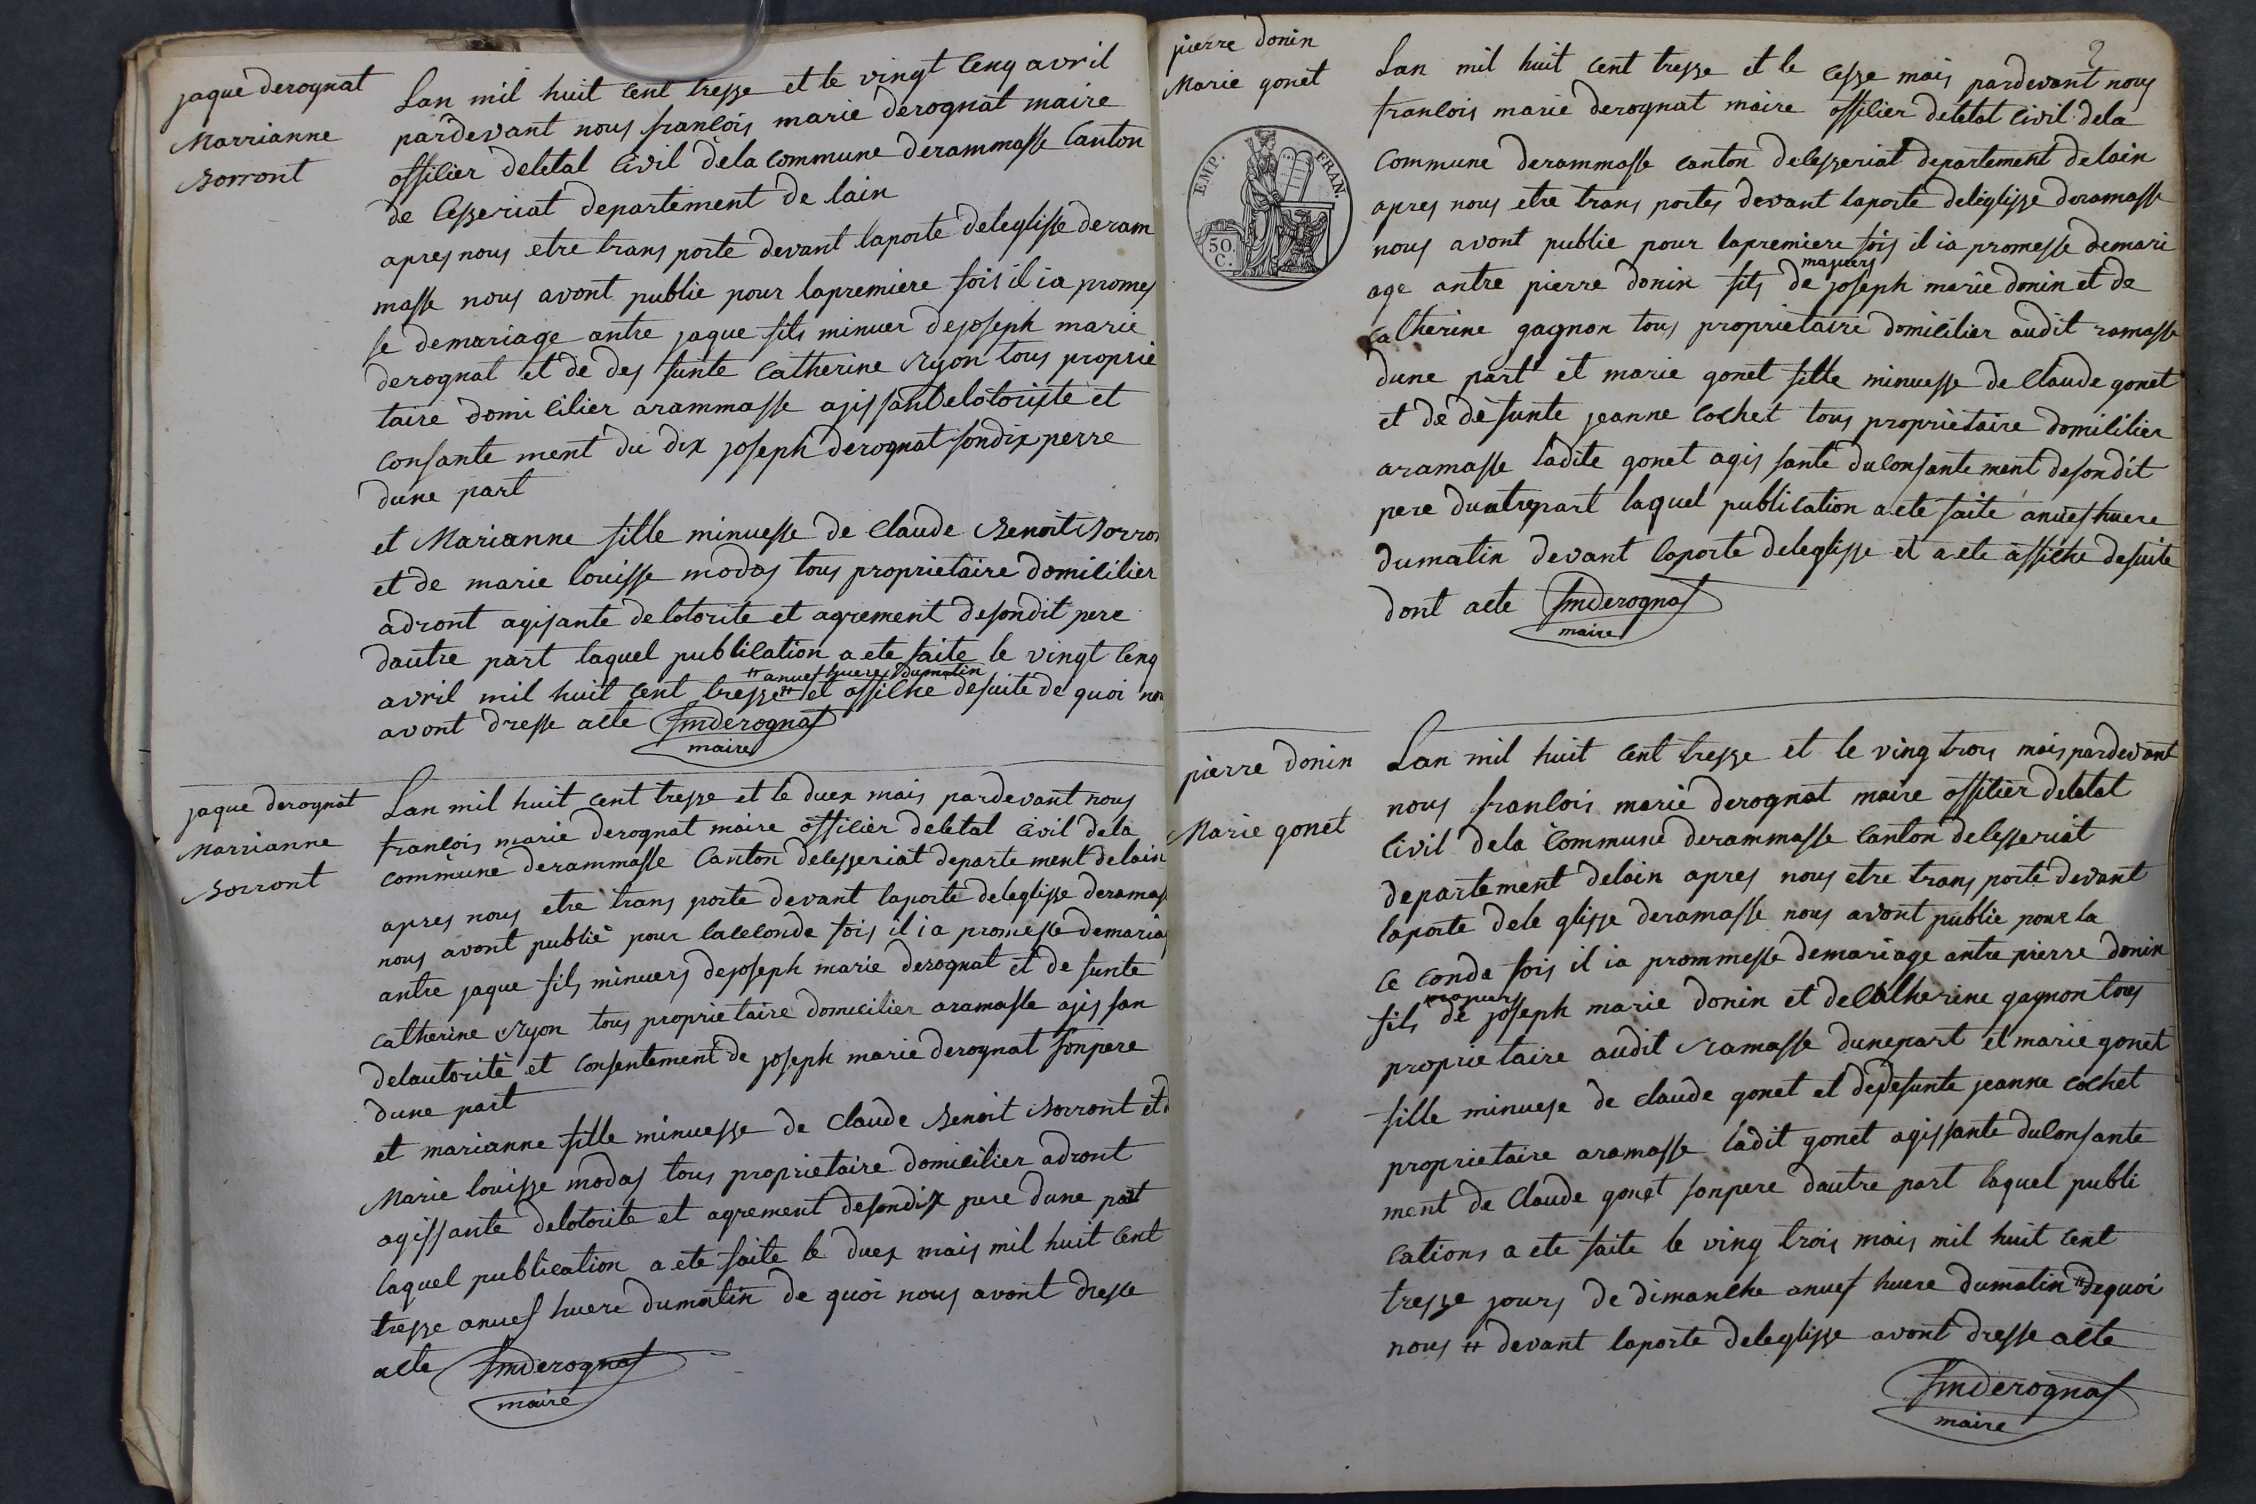 jaque derognat
Marrianne
Borront
Lan mil huit cent tresze et le vingt cenq avril
pardevant nous francois marie derognat maire
offilier deletat civil dela commune derammasse Canton
de Cesseriat departement de lain
apres nous etre trans porte devant laporte deleglisse deram
masse nous avont publie pour lapremiere fois il ia promes
se demariage antre jaque fils minuer dejoseph marie
derognat et de des funte catherine Ryon tous proprie
taire domicilier arammasse agissant delotorixte et
consante ment du dix joseph derognat sondix perre
dune part
et Marianne fille minuesse de Claude Benoit Borron
et de marie louisse modas tous proprietaire domicilier
adront agisante delotorite et agrement desondit pere
dautre part laquel publication a ete faite le vingt cenq
# anuef huere dumatin
avril mil huit cent tresze # et affiche desuite de quoi nou
avont dresse acte fmderognat
maire
jaque derognat
Marrianne
Borront
Lan mil huit cent tresze et le duex mais pardevant nous
francois marie derognat maire officier deletat civil dela
commune derammasse Canton delesseriat departe ment delain
apres nous etre trans porte devant laporte deleglisse deramas
nous avont publie pour laceconde fois il ia promesse demaria
antre jaque fils minuers dejoseph marie derognat et de funte
catherine Ryon tous proprietaire domicilier aramasse agis san
delautorite et consentement de joseph marie derognat sonpere
dune part
et marianne fille minuesse de Claude Benoit Borront et d
Marie louisse modas tous proprietaire domicilier adront
agissante delotorite et agrement desondix pere dune part
laquel publication a ete faite le duex mais mil huit cent
tresze anuef huere dumatin de quoi nous avont dresse
acte fmderognat
maire
2
pierre donin
Marie gonet
EMP. FRAN.
50.
C.
Lan mil huit cent tresze et le cesze mais pardevant nous
francois marie derognat maire offilier deletat civil dela
commune derammasse canton delesseriat departement delain
apres nous etre trans portes devant laporte deleglisse deramasse
nous avont publie pour lapremiere fois il ia promesse demari
majuers
age antre pierre donin fils de joseph marie donin et de
catherine gagnon tous proprietaire domicilier audit ramasse
dune part et marie gonet fille minuesse de Claude gonet
et de defunte jeanne cochet tous proprietaire domicilier
aramasse ladite gonet agis sante duconsante ment desondit
pere duntrepart laquel publication a ete faite anuef huere
dumatin devant laporte deleglisse et a ete affiche desuite
dont acte fmderognat
maire
pierre donin
Marie gonet
Lan mil huit cent tresze et le ving trois mais pardevant
nous francois marie derognat maire offilier deletat
civil dela commune derammasse Canton delesseriat
departement delain apres nous etre trans porte devant
laporte dele glisse deramasse nous avont publie pour la
ce conde fois il ia prommesse demariage antre pierre donin
majuers
fils de joseph marie donin et decatherine gagnon tous
proprietaire audit ramasse dunepart et marie gonet
fille minuese de claude gonet et dedefunte jeanne cochet
proprietaire aramasse ladit gonet agissante duconsante
ment de Claude gonet sonpere dautre part laquel publi
cations a ete faite le ving trois mais mil huit cent
tresze jours de dimanche anuef huere dumatin # dequoi
nous # devant laporte deleglisse avont dresse acte
fmderognat
maire